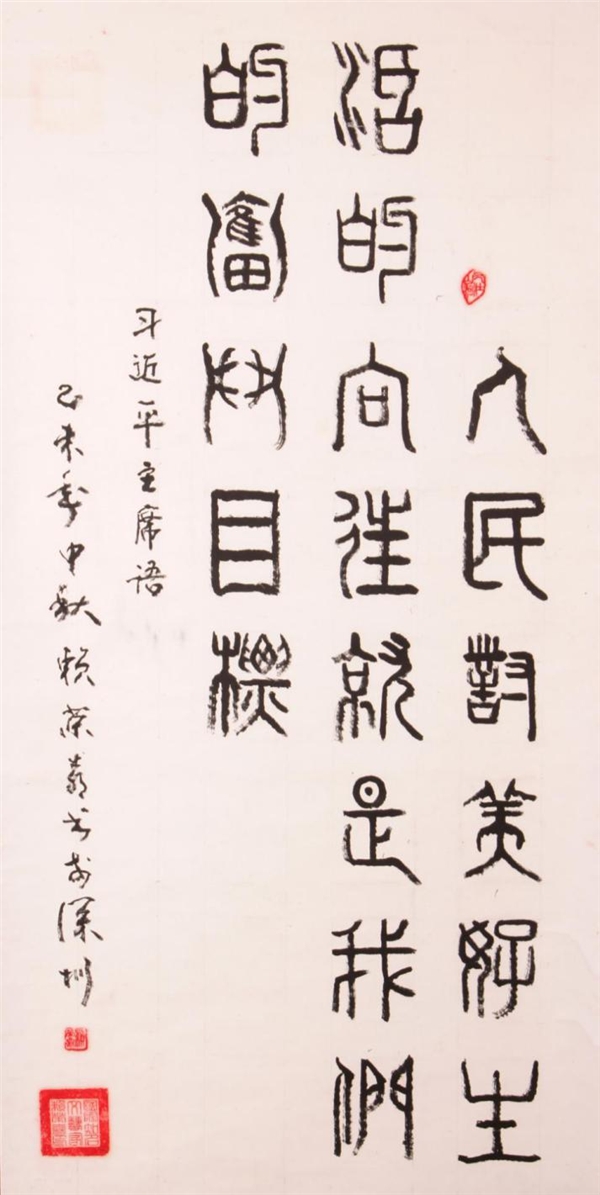 人民對美好生
活的向往就是我們
的奮鬥目標
习近平主席语
己未年中秋赖荣书于深圳